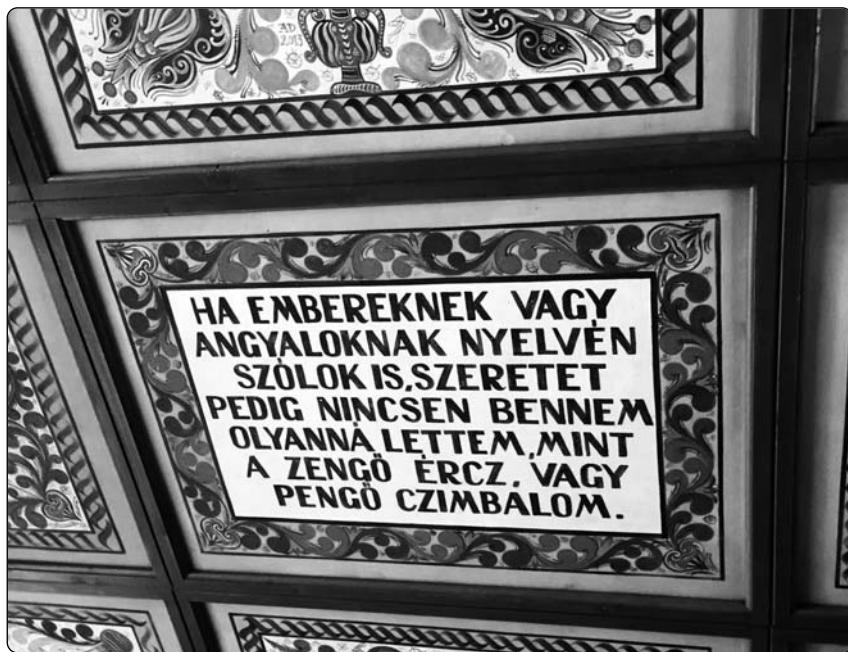 AD
2013
HA EMBEREKNEK VAGY
ANGYALOKNAK NYELVÉN
SZÓLOK IS, SZERETET
PEDIG NINCSEN BENNEM
OLYANNÁ LETTEM, MINT
A ZENGŐ ÉRCZ, VAGY
PENGŐ CZIMBALOM.